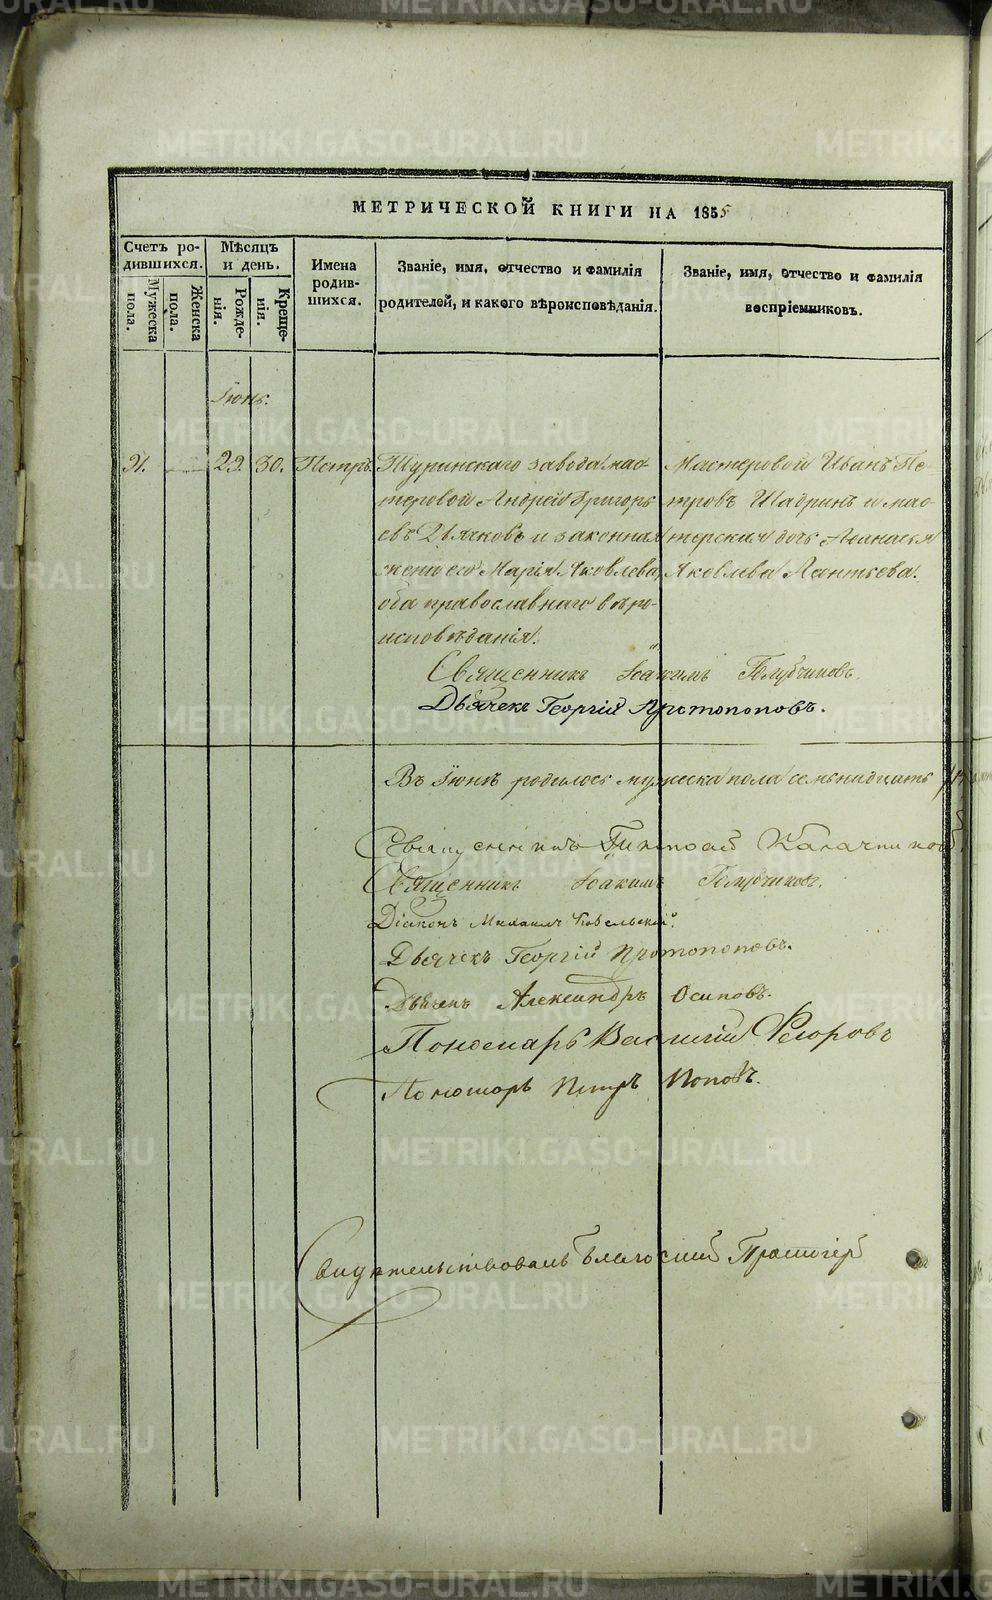 МЕТРИЧЕСКОЙ КНИГИ НА 1855
Счетъ ро-
дившихся.
Мужеска
пола.
Женска
пола.
Мѣсяцъ
и день.
Рожде-
нія.
Креще-
нія.
Имена
родив-
шихся.
Званіе, имя, отчество и фамилія
родителей, и какого вѣроисповѣданія.
Званіе, имя, отчество и фамилія
воспріемниковъ.
Іюнь.
91.
29.
30.
Петръ.
Туринскаго завода мас-
теровой Андрей Григорь-
евъ Дьячковъ и законная
жена его Марія Яковлева,
оба православнаго вѣро-
исповѣданія.
Мастеровой Иванъ Пе-
тровъ Шадринъ и мас-
терская дочь Афанасья
Яковлева Лаптева.
Священникъ Іоакимъ Голубчиковъ.
Дьячекъ Георгій Протопоповъ.
Въ Іюнѣ родилось мужеска пола семьнадцать
Священникъ Калачниковъ.
Священникъ Іоакимъ Голубчиковъ.
Діаконъ Михаилъ
Дьячекъ Георгій Протопоповъ.
Дьячекъ Александръ Осиповъ.
Пономарь Василій Флоровъ
Пономарь Петръ Поповъ.
Свидѣтельствовалъ Благочинный
METRIKI.GASO-URAL.RU